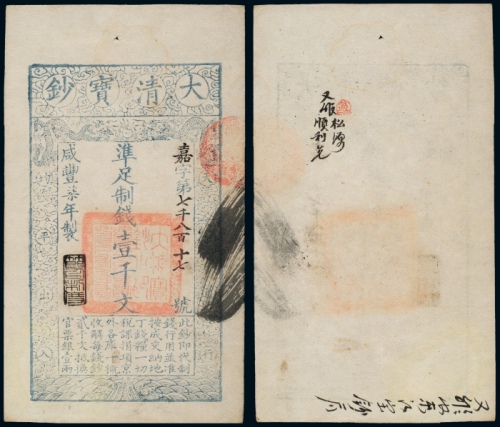 大清寶鈔
嘉字第七千八百十七號
準足制錢壹千文
咸豐柒年製
平出入
行
此鈔即代制
錢行用並准
按成交納地
丁錢糧一切
稅課捐項京
外各庫一概
收解每錢鈔
貳千文抵換
官票銀壹兩
松
順利